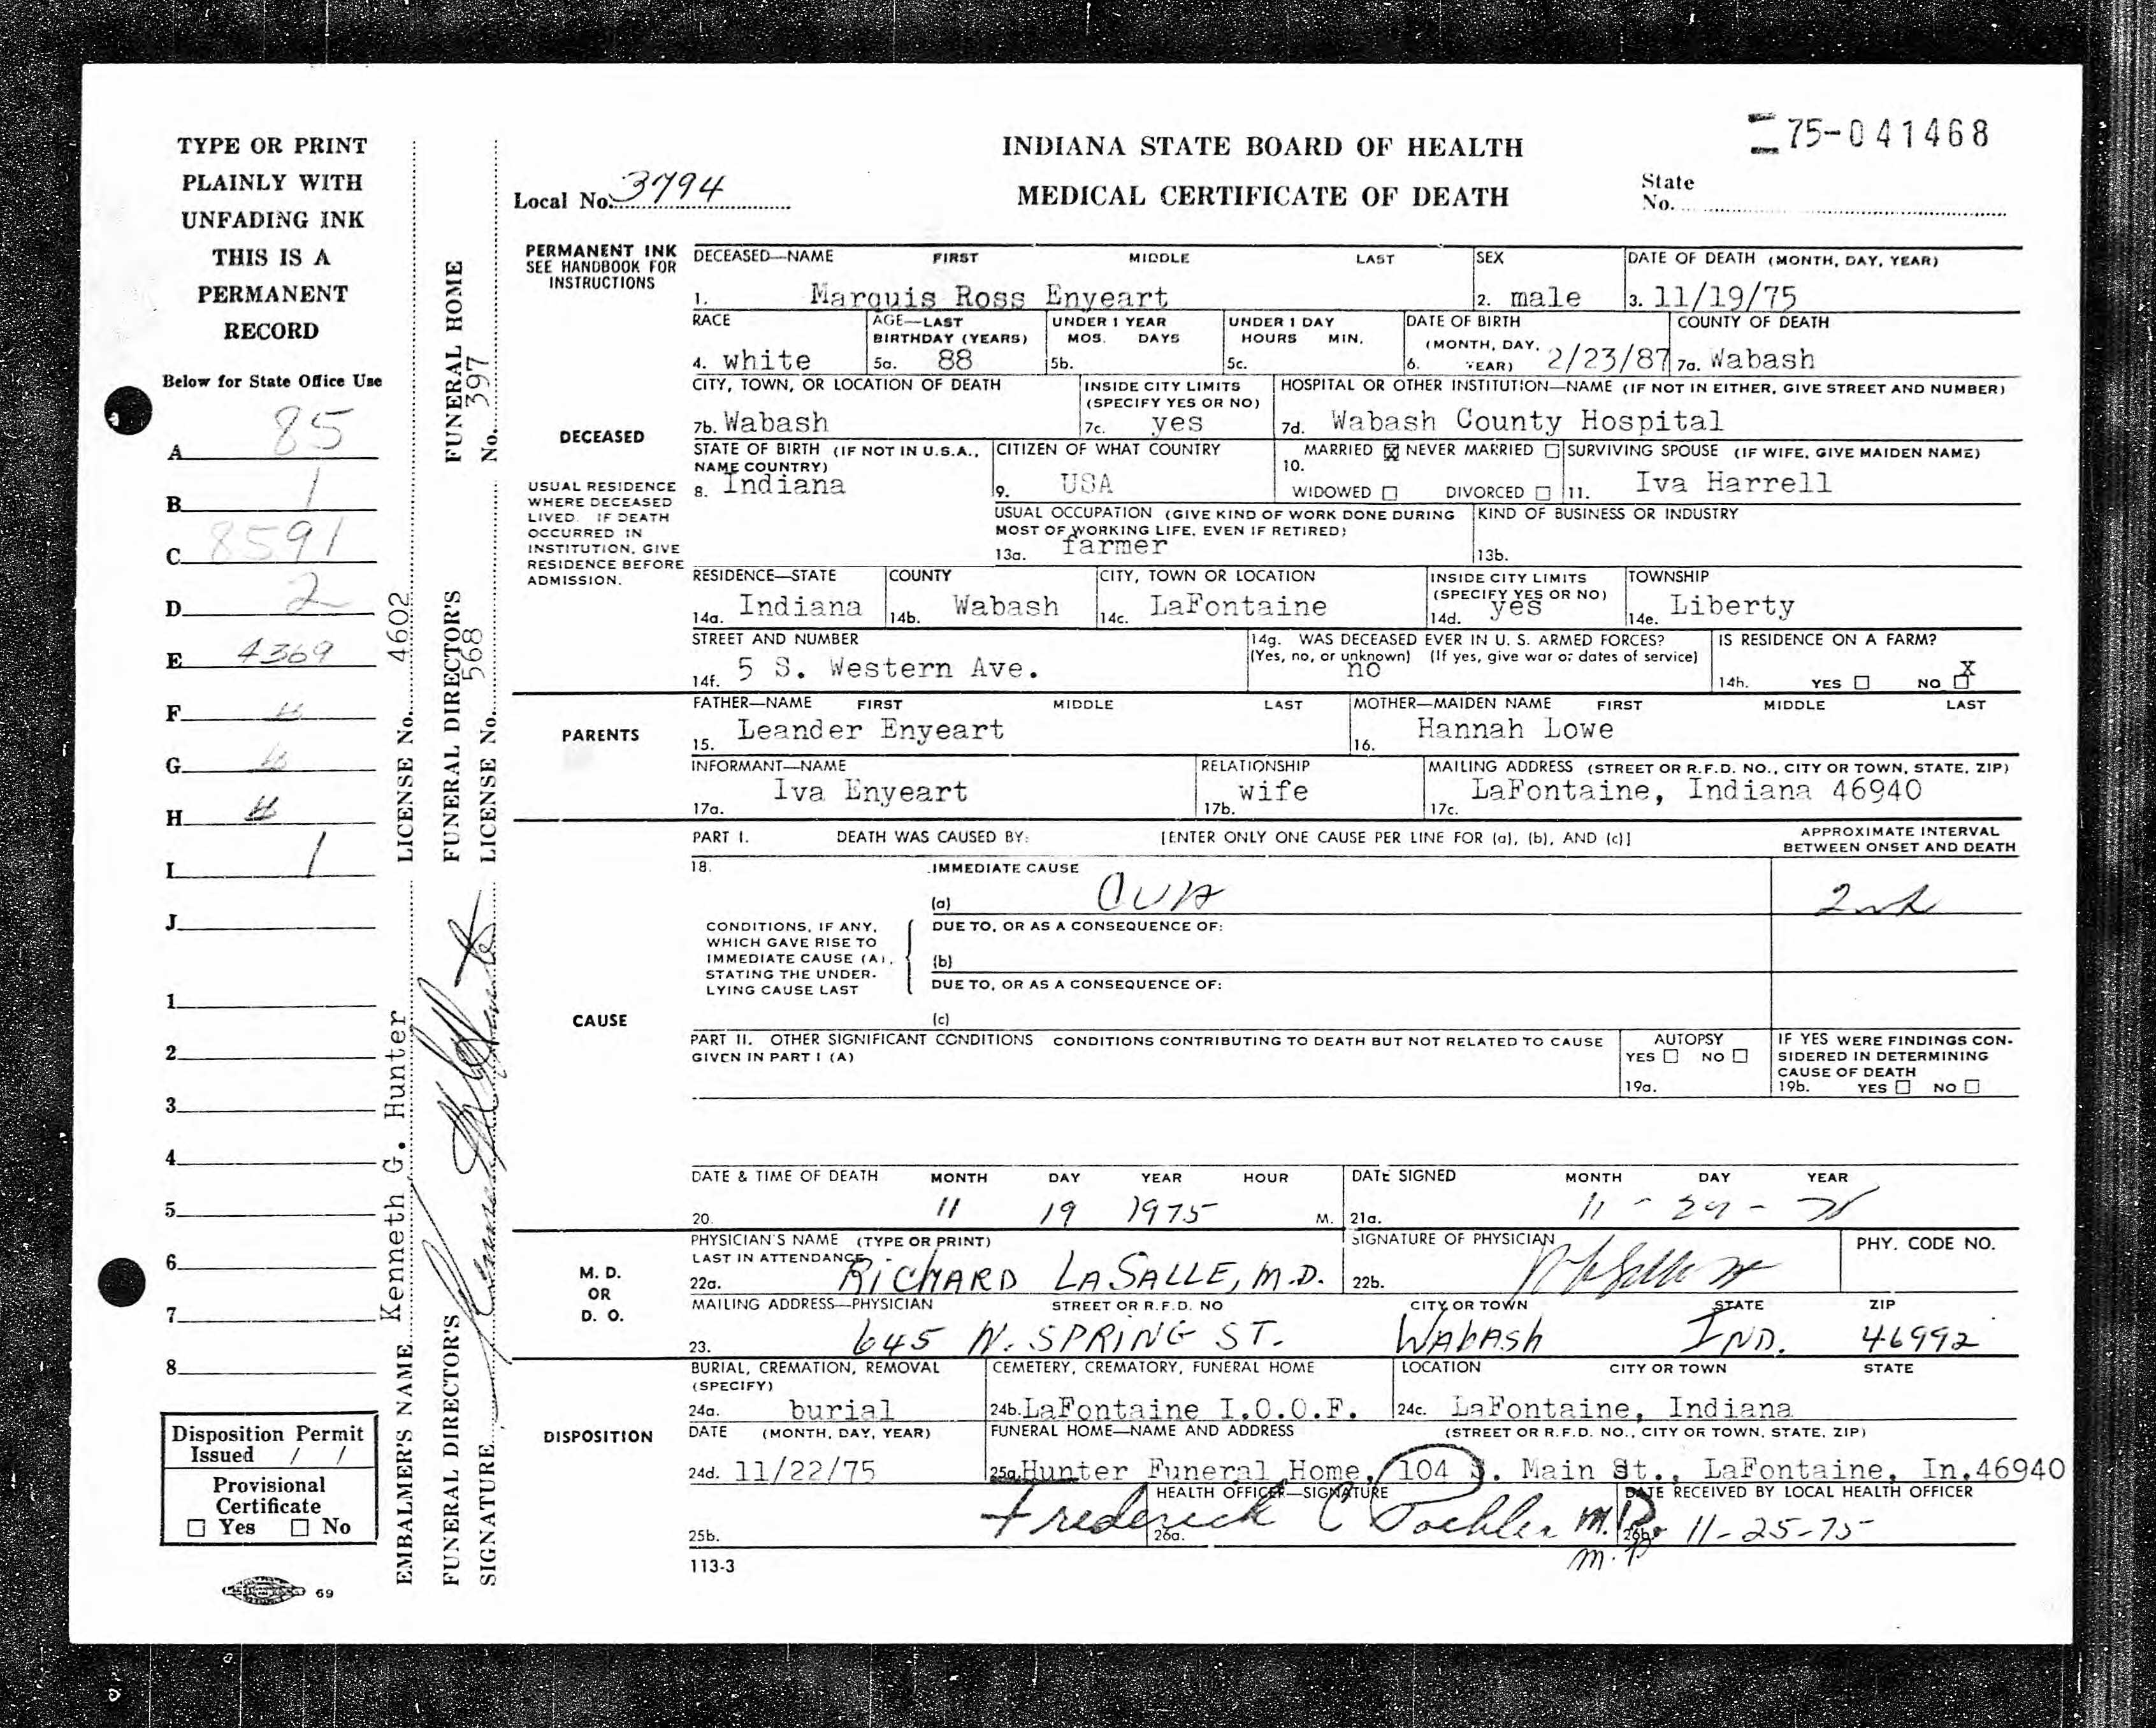 75-041468
TYPE OR PRINT
PLAINLY WITH
UNFADING INK
THIS IS A
PERMANENT
RECORD
Below for State Office Use
A 85
B 1
C 8591
D 2
E 4369
F
G
H
I 1
J
1
2
3
4
5
6
7
8
Disposition Permit
Issued / /
Provisional
Certificate
☐ Yes ☐ No
69
EMBALMER'S NAME Kenneth G. Hunter LICENSE No. 4602
FUNERAL DIRECTOR'S FUNERAL DIRECTOR'S FUNERAL HOME
SIGNATURE LICENSE No. 568 No. 397
INDIANA STATE BOARD OF HEALTH
MEDICAL CERTIFICATE OF DEATH
Local No. 3794
State
No.
PERMANENT INK
SEE HANDBOOK FOR
INSTRUCTIONS
DECEASED—NAME FIRST MIDDLE LAST SEX DATE OF DEATH (MONTH, DAY, YEAR)
1. Marquis Ross Enyeart 2. male 3. 11/19/75
RACE AGE—LAST BIRTHDAY (YEARS) UNDER 1 YEAR MOS. DAYS UNDER 1 DAY HOURS MIN. DATE OF BIRTH (MONTH, DAY, YEAR) COUNTY OF DEATH
4. white 5a. 88 5b. 5c. 6. 2/23/87 7a. Wabash
CITY, TOWN, OR LOCATION OF DEATH INSIDE CITY LIMITS (SPECIFY YES OR NO) HOSPITAL OR OTHER INSTITUTION—NAME (IF NOT IN EITHER, GIVE STREET AND NUMBER)
DECEASED
7b. Wabash 7c. yes 7d. Wabash County Hospital
STATE OF BIRTH (IF NOT IN U.S.A., NAME COUNTRY) CITIZEN OF WHAT COUNTRY MARRIED ☒ NEVER MARRIED ☐ SURVIVING SPOUSE (IF WIFE, GIVE MAIDEN NAME)
8. Indiana 9. USA 10. WIDOWED ☐ DIVORCED ☐ 11. Iva Harrell
USUAL RESIDENCE
WHERE DECEASED
LIVED. IF DEATH
OCCURRED IN
INSTITUTION, GIVE
RESIDENCE BEFORE
ADMISSION.
USUAL OCCUPATION (GIVE KIND OF WORK DONE DURING MOST OF WORKING LIFE, EVEN IF RETIRED) KIND OF BUSINESS OR INDUSTRY
13a. farmer 13b.
RESIDENCE—STATE COUNTY CITY, TOWN OR LOCATION INSIDE CITY LIMITS (SPECIFY YES OR NO) TOWNSHIP
14a. Indiana 14b. Wabash 14c. LaFontaine 14d. yes 14e. Liberty
STREET AND NUMBER 14g. WAS DECEASED EVER IN U. S. ARMED FORCES? IS RESIDENCE ON A FARM?
(Yes, no, or unknown) (If yes, give war or dates of service)
14f. 5 S. Western Ave. no 14h. YES ☐ NO ☐ X
PARENTS
FATHER—NAME FIRST MIDDLE LAST MOTHER—MAIDEN NAME FIRST MIDDLE LAST
15. Leander Enyeart 16. Hannah Lowe
INFORMANT—NAME RELATIONSHIP MAILING ADDRESS (STREET OR R.F.D. NO., CITY OR TOWN, STATE, ZIP)
17a. Iva Enyeart 17b. wife 17c. LaFontaine, Indiana 46940
CAUSE
PART I. DEATH WAS CAUSED BY: [ENTER ONLY ONE CAUSE PER LINE FOR (a), (b), AND (c)] APPROXIMATE INTERVAL BETWEEN ONSET AND DEATH
18. IMMEDIATE CAUSE
(a) CVA
CONDITIONS, IF ANY,
WHICH GAVE RISE TO
IMMEDIATE CAUSE (A),
STATING THE UNDER-
LYING CAUSE LAST
DUE TO, OR AS A CONSEQUENCE OF:
(b)
DUE TO, OR AS A CONSEQUENCE OF:
(c)
PART II. OTHER SIGNIFICANT CONDITIONS CONDITIONS CONTRIBUTING TO DEATH BUT NOT RELATED TO CAUSE
GIVEN IN PART I (A)
AUTOPSY
YES ☐ NO ☐
19a.
IF YES WERE FINDINGS CON-
SIDERED IN DETERMINING
CAUSE OF DEATH
19b. YES ☐ NO ☐
DATE & TIME OF DEATH MONTH DAY YEAR HOUR DATE SIGNED MONTH DAY YEAR
20. 11 19 1975 M. 21a. 11 -
M. D.
OR
D. O.
PHYSICIAN'S NAME (TYPE OR PRINT) SIGNATURE OF PHYSICIAN PHY. CODE NO.
LAST IN ATTENDANCE
22a. RICHARD LASALLE, M.D. 22b.
MAILING ADDRESS—PHYSICIAN STREET OR R.F.D. NO CITY OR TOWN STATE ZIP
23. 645 N. SPRING ST. WABASH IND. 46992
DISPOSITION
BURIAL, CREMATION, REMOVAL (SPECIFY) CEMETERY, CREMATORY, FUNERAL HOME LOCATION CITY OR TOWN STATE
24a. burial 24b. LaFontaine I.O.O.F. 24c. LaFontaine, Indiana
DATE (MONTH, DAY, YEAR) FUNERAL HOME—NAME AND ADDRESS (STREET OR R.F.D. NO., CITY OR TOWN, STATE, ZIP)
24d. 11/22/75 25a. Hunter Funeral Home, 104 S. Main St., LaFontaine, In.46940
HEALTH OFFICER—SIGNATURE DATE RECEIVED BY LOCAL HEALTH OFFICER
25b. 26a. Frederick C Poehler M.D. 26b. 11-25-75
113-3